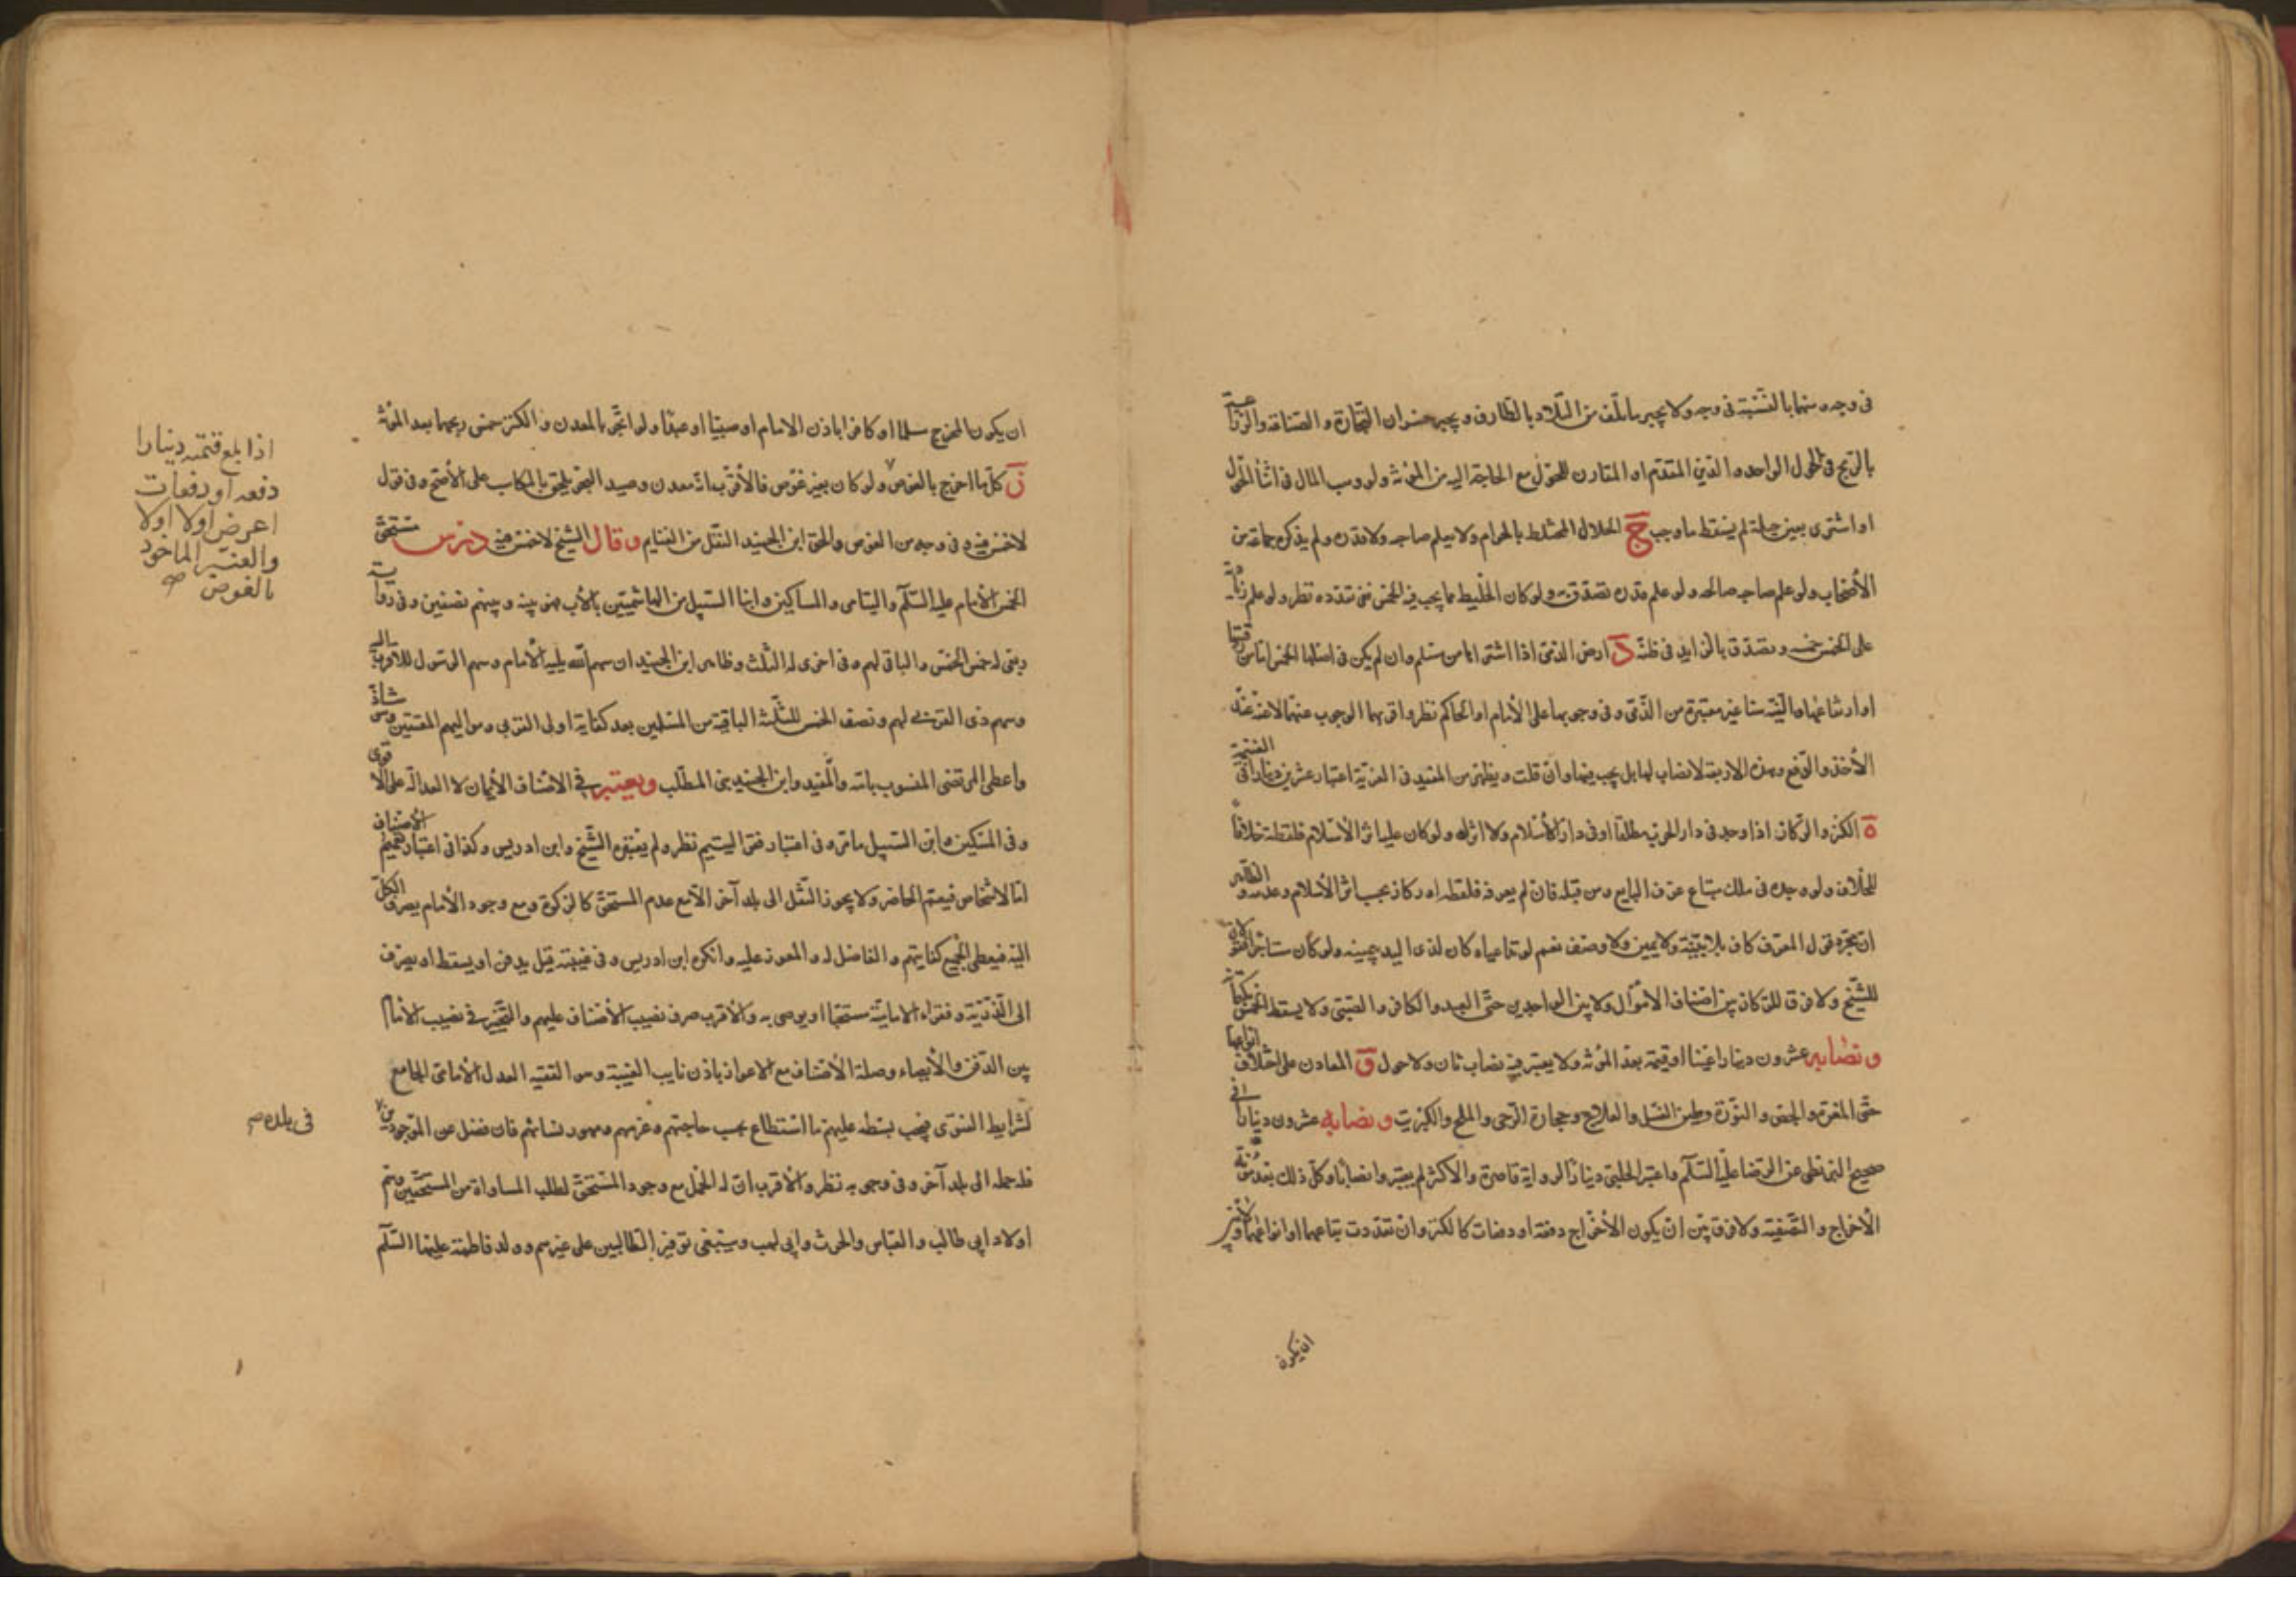 فى وجه ومنها بالنسبة فى وجه ولا يجبر ما تلف من التلاد بالطارف ويجبر خسران التجارة والصناعة والزراعة
بالربح فى الحول الواحد والدين المتقدم او المقارن للحول مع الحاجة اليه من المؤنة ولو وهب المال فى اثناء الحول
او اشترى بغير حيلة لم يسقط ما وجب ج الحلال المختلط بالحرام ولا يعلم صاحبه ولا قدره ولم يذكره جماعة من
الأصحاب ولو علم صاحبه صالحه ولو علم قدره تصدق به ولو كان الخليط مما يجب فيه الخمس ففى تعدده نظر ولو علم زيادته
على الخمس خمسه وتصدق بالزايد فى ظنه د ارض الذمى اذا اشتراها من مسلم وان لم يكن فى اصلها الخمس اما من رقبتها
او ارتفاعها والنية هنا غير معتبرة من الذمى وفى وجوبها على الأمام او الحاكم نظر واقربهما الوجوب عنهما لا عنه عند
الأخذ والدفع وهذه الاربعة لا نصاب لها بل يجب فيها وان قلت ويظهر من المفيد فى الغرية اعتبار عشرين دينارا فى الغنيمة
ه الكنز والركاز اذا وجد فى دار الحرب مطلقا او فى دار الأسلام ولا اثر له ولو كان عليه اثر الأسلام فلقطة خلافا
للخلاف ولو وجده فى ملك مبتاع عرف البايع ومن قبله فان لم يعرفه فلقطة او ركاز بحسب اثر الأسلام وعدمه والظاهر
ان مجرد قول المعرف كاف بلا بينة ولا يمين ولا وصف نعم لو تداعياه كان لذى اليد بيمينه ولو كان مستاجرا فقولان
للشيخ ولا فرق للركاز بين اصناف الاموال ولا بين الواجدين حتى العبد والكافر والصبى ولا يسقط الخمس بكتمانه
ونصابه عشرون دينارا عينا او قيمة بعد المؤنة ولا يعتبر فيه نصاب ثان ولا حول و المعادن على اختلاف انواعها
حتى المغرة والجص والنورة وطين الغسل والعلاج وحجارة الرحى والملح والكبريت ونصابه عشرون دينارا فى
صحيح البزنطى عن الرضا عليه السلم واعتبر الحلبى دينارا لرواية قاصرة والاكثر لم يعتبروا نصابا وكل ذلك بعد مؤنة
الأخراج والتصفية ولا فرق بين ان يكون الأخراج دفعة او دفعات كالكنز وان تعددت بقاعهما او انواعهما ولا بين
ان يكون
ان يكون المخرج مسلما او كافرا باذن الامام او صبيا او عبدا ولو اتجر بالمعدن والكنز خمس ربحهما بعد المؤنة
ز كل ما اخرج بالغوص ولو كان بغير غوص فالأقرب انه معدن وصيد البحر يلحق بالمكاسب على الأصح وفى قول
لا خمس فيه وفى وجه من الغوص والحق ابن الجنيد النفل من الغنايم وقال الشيخ لا خمس فيه درس مستحق
الخمس الأمام عليه السلم واليتامى والمساكين وابناء السبيل من الهاشميين بالأب فهو بينه وبينهم نصفين وفى رواية
ربعى له خمس الخمس والباقى لهم وفى اخرى له الثلث وظاهر ابن الجنيد ان سهم الله يليه الأمام وسهم الرسول للأقرب اليه
وسهم ذى القربى لهم ونصف الخمس للثلثة الباقية من المسلمين بعد كفاية اولى القربى ومواليهم المعتقين وهو شاذ
واعطى المرتضى المنسوب بامه والمفيد وابن الجنيد بنى المطلب ويعتبر فى الاصناف الأيمان لا العدالة على الاقوى
وفى المسكين وابن السبيل ما مر وفى اعتبار فقر اليتيم نظر ولم يعتبره الشيخ وابن ادريس وكذا فى اعتبار تعميم الأصناف
اما الاشخاص فيعم الحاضر ولا يجوز النقل الى بلد آخر الا مع عدم المستحق كالزكوة ومع وجود الأمام يصرف الكل
اليه فيعطى الجميع كفايتهم والفاضل له والمعوز عليه وانكره ابن ادريس وفى غيبته قيل يدفن او يسقط او يصرف
الى الذرية وفقراء الامامية مستحبا او يوصى به والأقرب صرف نصيب الأصناف عليهم والتخيير فى نصيب الأمام
بين الدفن والأيصاء وصلة الأصناف مع الاعواز باذن نايب الغيبة وهو الفقيه العدل الأمامى الجامع
لشرايط الفتوى فيجب بسطه عليهم ما استطاع بحسب حاجتهم وغرمهم ومهور نسائهم فان فضل عن الموجودين
فله حمله الى بلد آخر وفى وجوبه نظر والأقرب ان له الحمل مع وجود المستحق لطلب المساواة من المستحقين وهم
اولاد ابى طالب والعباس والحرث وابى لهب وينبغى توفير الطالبين على غيرهم وولد فاطمة عليها السلم
اذا بلغ قيمته دينارا
دفعه او دفعات
اعرض اولا اولا
والعنبر الماخوذ
بالغوص
فى بلده